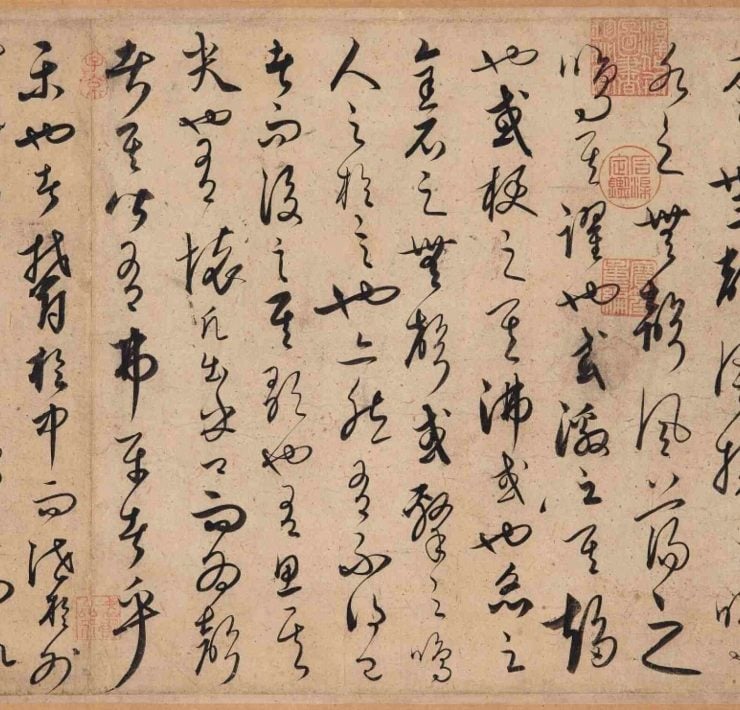 水之無聲風蕩之
鳴其躍也或激之其趨
也或梗之其沸或也炙之
金石之無聲或擊之鳴
人之於言也亦然有不得已
者而後言其歌也有思其
哭也有懷凡出乎口而為聲
者其皆有弗平者乎
樂也者鬱於中而泄於外